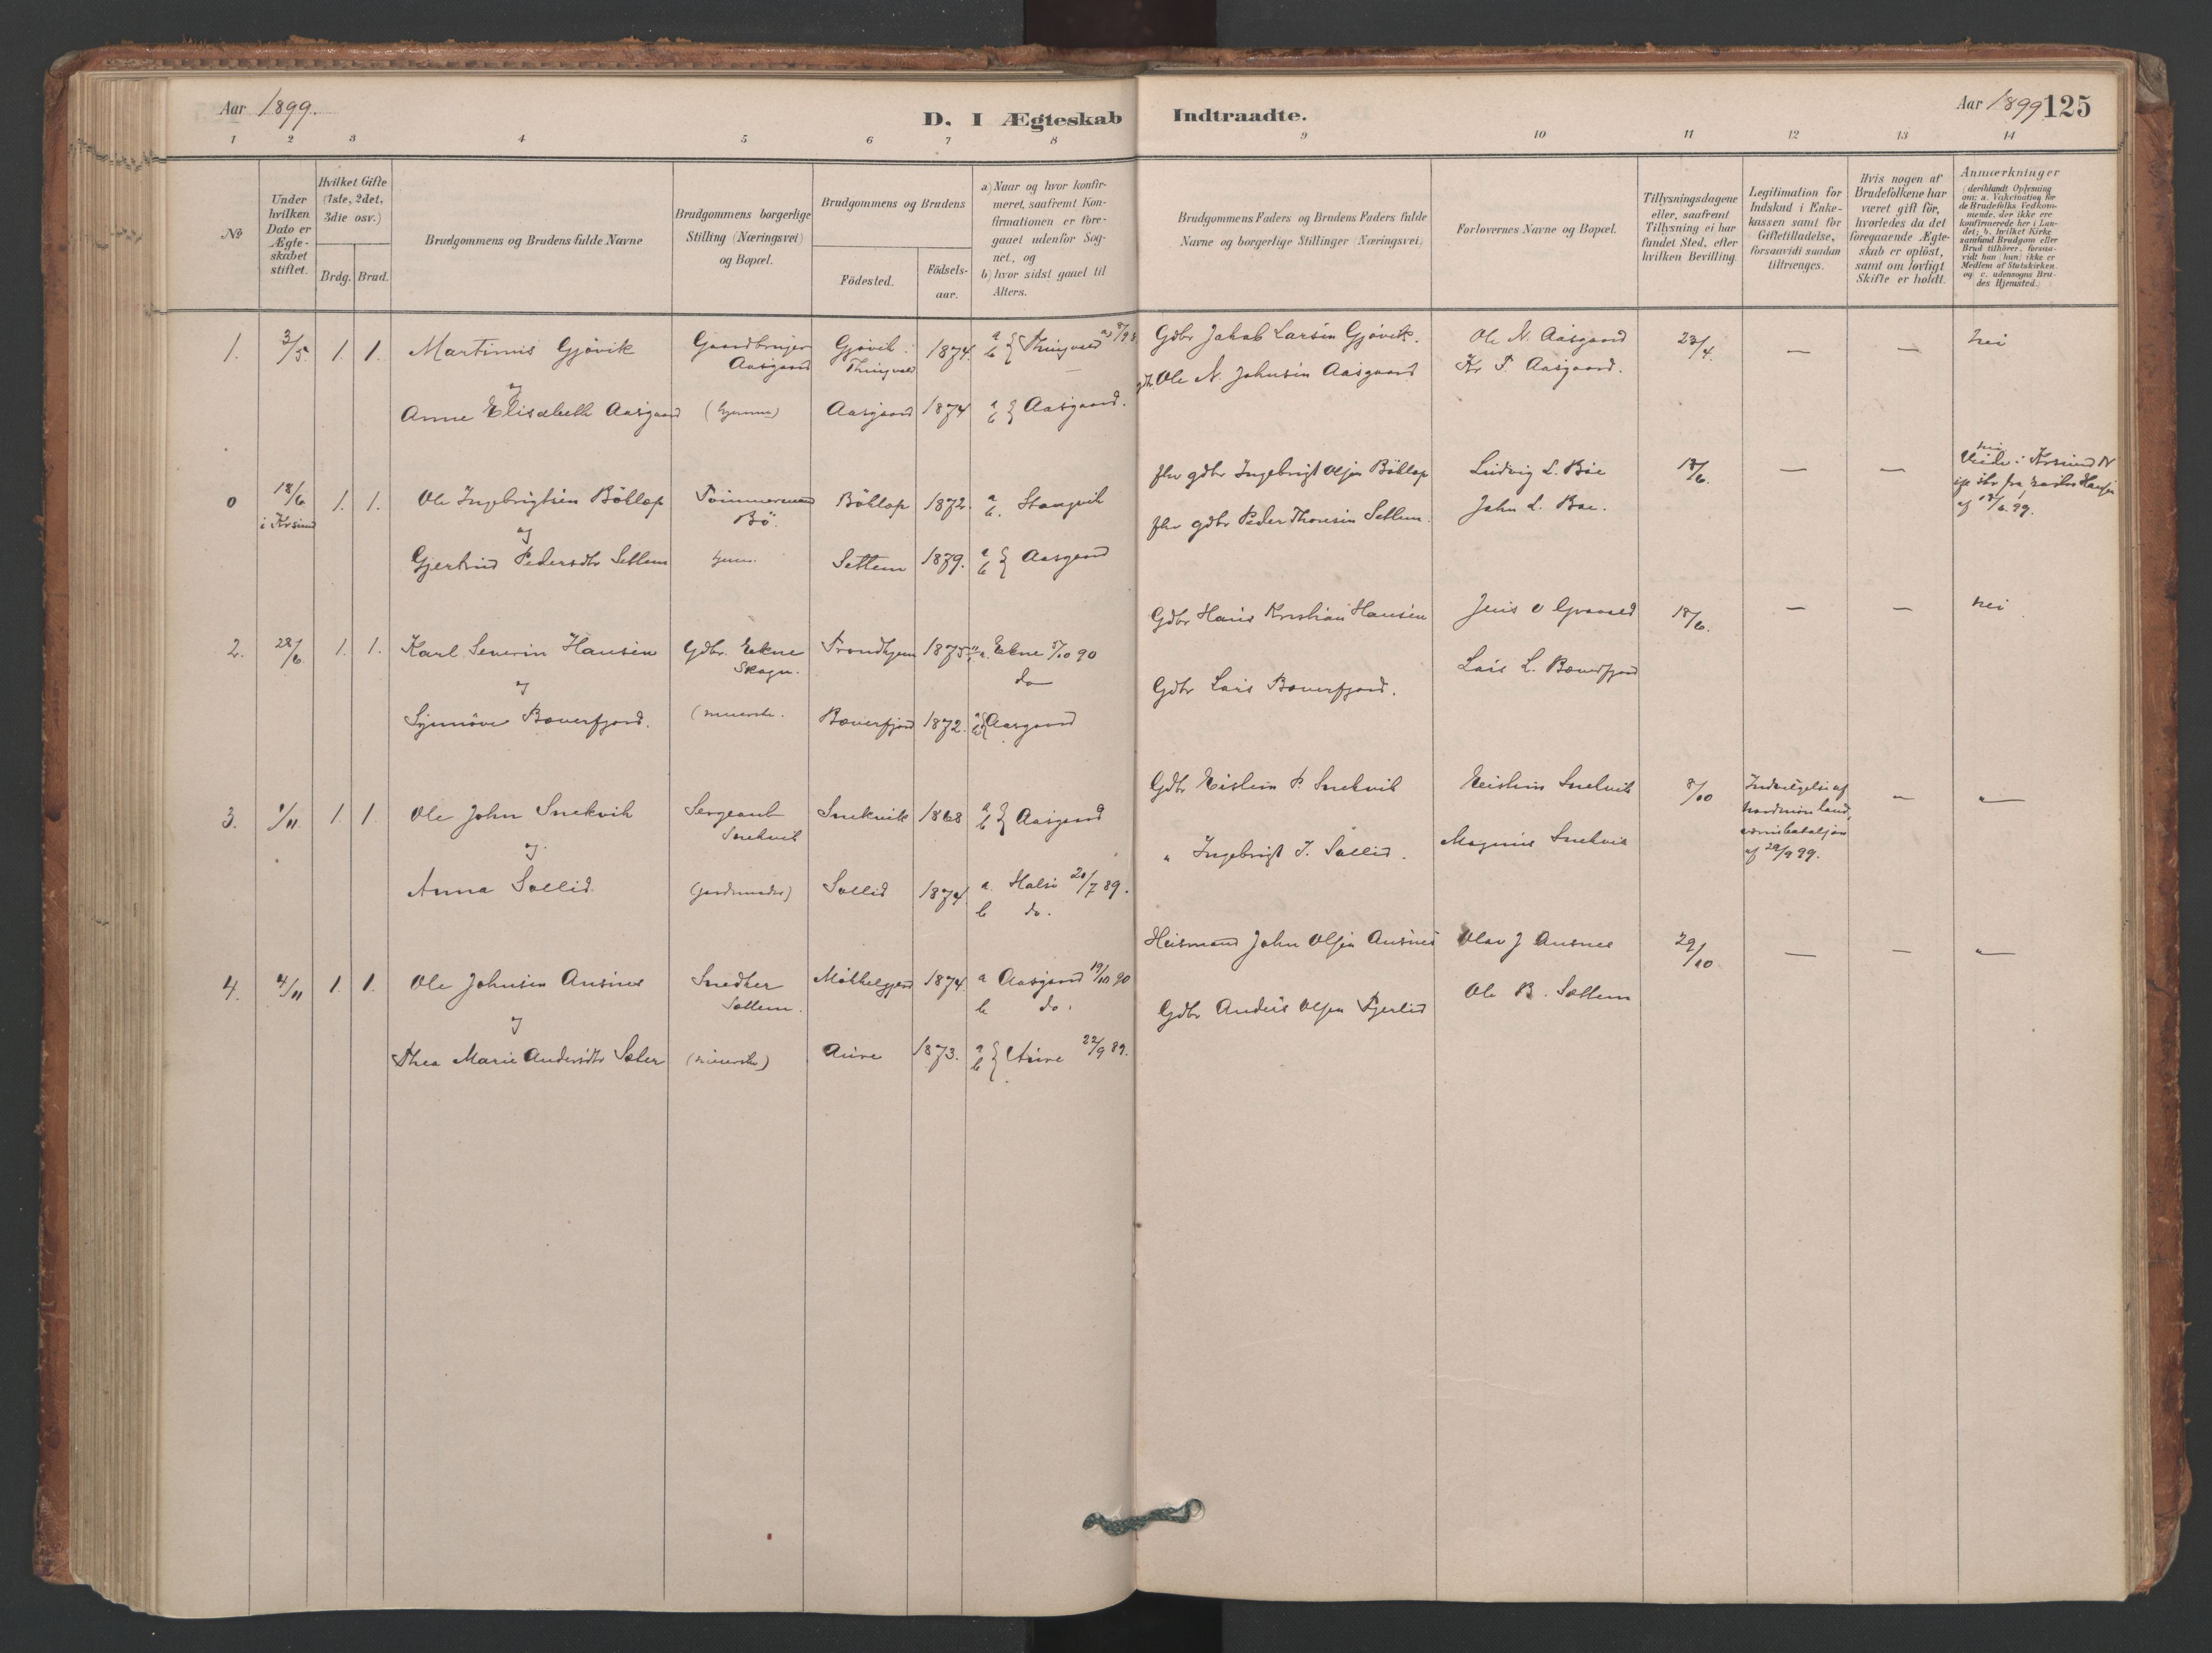 Aar 1899.
D. I Ægteskab Indtraadte.
Aar 1899 125
1 2 3 4 5 6 7 8 9 10 11 12 13 14
No
Under hvilken Dato er Ægteskabet stiftet.
Hvilket Gifte (1ste, 2det, 3die osv.)
Brdg. Brud.
Brudgommens og Brudens fulde Navne
Brudgommens borgerlige Stilling (Næringsvei) og Bopæl.
Brudgommens og Brudens
Födested. Födsels-aar.
a) Naar og hvor konfirmeret, saafremt Konfirmationen er foregaaet udenfor Sognet, og
b) hvor sidst gaaet til Alters.
Brudgommens Faders og Brudens Faders fulde Navne og borgerlige Stillinger (Næringsvei)
Forlovernes Navne og Bopæl.
Tillysningsdagene eller, saafremt Tillysning ei har fundet Sted, efter hvilken Bevilling.
Legitimation for Indskud i Enkekassen samt for Giftetilladelse, forsaavidt saadan tiltrænges.
Hvis nogen af Brudefolkene har været gift för, hvorledes da det foregaaende Ægteskab er oplöst, samt om lovligt Skifte er holdt.
Anmærkninger (deriblandt Oplysning om: a. Vakcination for de Brudefolks Vedkommende, der ikke ere konfirmerede her i Landet; b. hvilket Kirkesamfund Brudgom eller Brud tilhörer, forsaavidt han (hun) ikke er Medlem af Statskirken, og c. udensogns Brudes Hjemsted.)
1. 3/5. 1. 1. Martinus Gjövik Gaardbruger Aasgaard Gjövik Thingvold 1874. a b } Thingvold
Gdbr Jakob Larsen Gjövik. Ole N. Aasgaard 23/4. — — nei
og
Anne Elisabeth Aasgaard (hjemme) Aasgaard 1874 a b } Aasgaard.
gdb Ole N. Johnsen Aasgaard Kr P. Aasgaard.
0 18/6 i Krsund 1. 1. Ole Ingebrigtsen Böklep Tømmermand Bö. Böklep 1872. a b. Stangvik
fhv gdbr Ingebrigt Olsen Böklep Ludvig L. Böe 18/6. — — nei Viede i Krsund N
af 18/6 99.
og
Gjertrud Pedersdtr Settem hjem. Settem 1879. a b } Aasgaard
fhv gdbr Peder Thoresen Settem. John L. Böe.
2. 28/6 1. 1. Karl Severin Hansen Gdbr. Ekne Skogn. Trondhjem 1875 a. Ekne 5/10 90 do
Gdbr Hans Kristian Hansen Jens 18/6. — — nei
og
Synnöve Bæverfjord. Bæverfjord 1872. a b } Aasgaard
Gdbr Lars Bæverfjord. Lars L. Bæverfjord
3. 1/11. 1. 1. Ole John Snekvik Sergeant Snekvik Snekvik 1868 a b } Aasgaard
Gdbr Eistein P. Snekvik Eistein Snekvik 8/10 Indvilgelse af Nordmör landværnsbataljon af 29/9 99. — —
og
Anna Sollid (jordmoder) Sollid 1874 a. Halse 20/7 89. b do.
" Ingebrigt J. Sollid. Magnus Snekvik
4. 4/11 1. 1. Ole Johnsen Ansnes Snedker Settem. Mökkelgjerd 1874 a Aasgaard 19/10 90 b do.
Huismand John Olsen Ansnes Olav J Ansnes 29/10 — — —
og
Thea Marie Andersdtr Sæter Aure 1873. a b } Aure 22/9 89.
Gdbr Anders Olsen Ole B. Settem